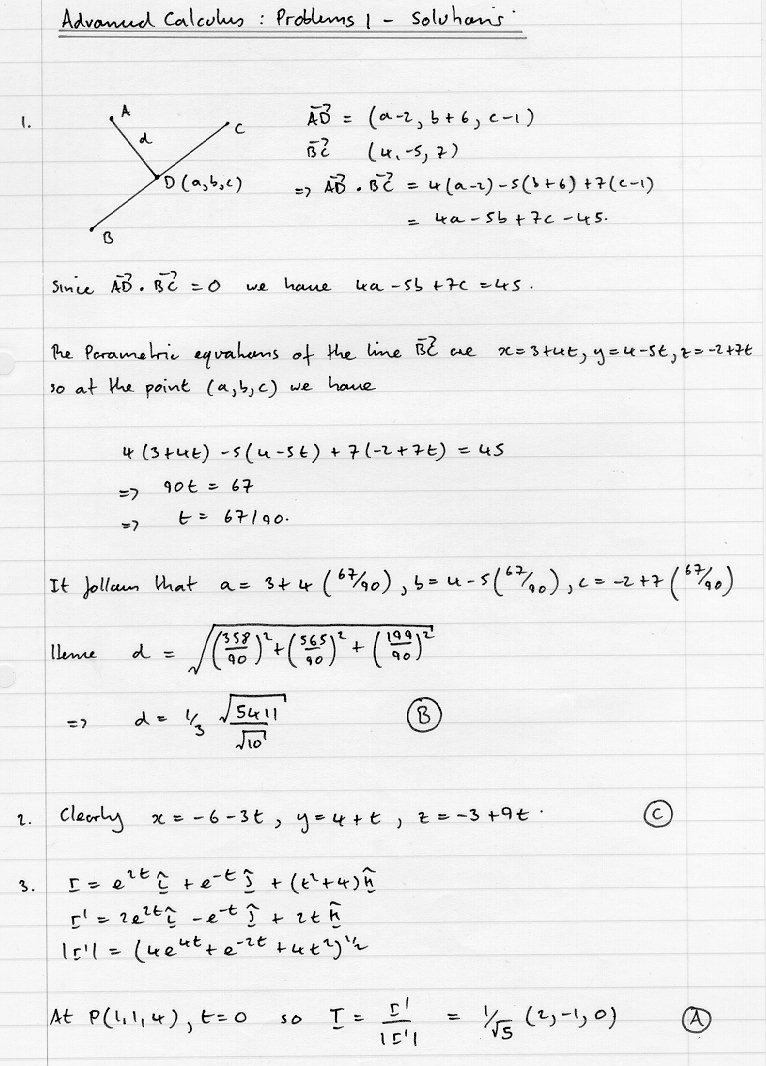 Advanced Calculus : Problems 1 - Solutions
1.
A
d
C
D(a,b,c)
B
AD⃗ = (a-2, b+6, c-1)
BC⃗ (4,-5,7)
=> AD⃗ . BC⃗ = 4(a-2)-5(b+6)+7(c-1)
= 4a-5b+7c-45.
Since AD⃗ . BC⃗ = 0 we have 4a-5b+7c=45.
The Parametric equations of the line BC⃗ are x=3+4t, y=4-5t, z=-2+7t
so at the point (a,b,c) we have
4(3+4t) -5(4-5t) + 7(-2+7t) = 45
=> 90t = 67
=> t = 67/90.
It follows that a = 3+4(67/90), b=4-5(67/90), c=-2+7(67/90)
Hence d = √((358/90)²+(565/90)²+(199/90)²)
=> d = 1/3 √5411/√10 (B)
2. Clearly x = -6-3t, y=4+t, z=-3+9t. (C)
3. r = e^2t î + e^-t ĵ + (t²+4) k̂
r' = 2e^2t î - e^-t ĵ + 2t k̂
|r'| = (4e^4t + e^-2t + 4t²)^1/2
At P(1,1,4), t=0 so T = r'/|r'| = 1/√5 (2,-1,0) (A)